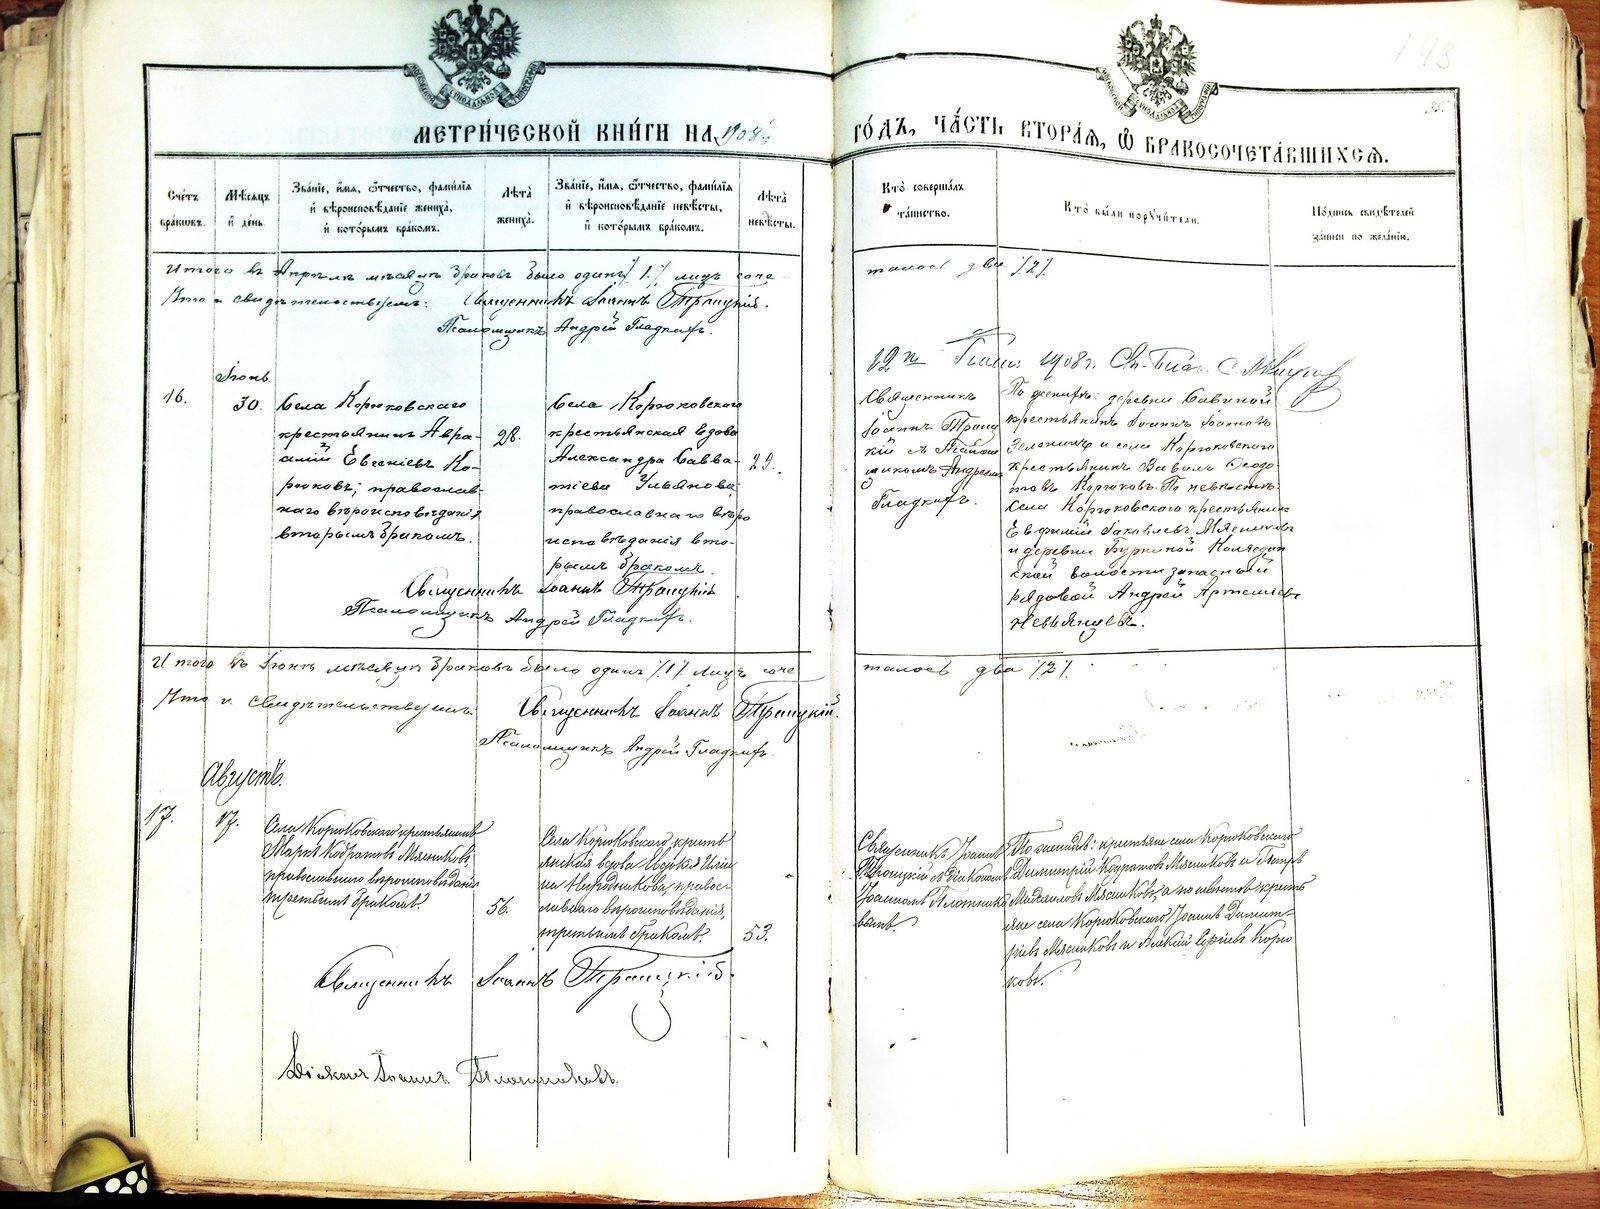 143
35.
МЕТРИ́ЧЕСКОЙ КНИ́ГИ НА 1908й
ГО́ДЪ, ЧА́СТЬ ВТОРА́Я, Ѡ БРАКОСОЧЕТА́ВШИХСЯ.
Сче́тъ
бра́ковъ.
Мѣ́сяцъ
и҆ де́нь.
Зва́нїе, и҆́мя, ѻ҆́тчество, фами́лїя
и҆ вѣроисповѣ́данїе жениха̀,
и҆ кото́рымъ бра́комъ.
Лѣ́та
жениха̀.
Зва́нїе, и҆́мя, ѻ҆́тчество, фами́лїя
и҆ вѣроисповѣ́данїе невѣ́сты,
и҆ кото́рымъ бра́комъ.
Лѣ́та
невѣ́сты.
Кто̀ соверша́лъ
та́инство.
Кто̀ бы́ли поручи́тели.
По́дпись свидѣ́телей
за́писи по жела́нїю.
Итого въ Апрѣлѣ мѣсяцѣ браковъ было одинъ /1./ лицъ соче-
талось два /2/.
Что и свидѣтельствуемъ: Священникъ Іоаннъ Троицкій.
Псаломщикъ Андрей Гладкихъ.
12го 1908 г.
Іюнь
16.
30.
Села Корюковскаго
крестьянинъ Авра-
амій Евсеніевъ Ко-
рюковъ; православ-
наго вѣроисповѣданія
вторымъ бракомъ.
28.
Села Корюковскаго
крестьянская вдова
Александра Савва-
тіева Ульянова;
православнаго вѣро
исповѣданія вто-
рымъ бракомъ.
29.
Священникъ
Іоаннъ Троиц
кій съ Псалом
щикомъ Андреемъ
Гладкихъ.
По женихѣ: деревни Савиной
крестьянинъ Іоаннъ Іоанновъ
Зеленинъ и села Корюковскаго
крестьянинъ Вавилъ Ѳеодо-
товъ Корюковъ. По невѣстѣ:
села Корюковскаго крестьянинъ
Евфимій Іаковлевъ Мясниковъ
и деревни Буриной
ской волости запасный
рядовой Андрей Артемьевъ
Невьянцевъ.
Священникъ Іоаннъ Троицкій
Псаломщикъ Андрей Гладкихъ.
Итого въ Іюнѣ мѣсяцѣ браковъ было одинъ /1/ лицъ соче
талось два /2/.
Что и свидѣтельствуемъ: Священникъ Іоаннъ Троицкій.
Псаломщикъ Андрей Гладкихъ.
Августъ.
17.
17.
Села Корюковскаго крестьянинъ
Маркъ Кодратовъ Мясниковъ,
православнаго вѣроисповѣданія
третьимъ бракомъ.
56.
Села Корюковскаго кресть
янская вдова
на православ-
славнаго вѣроисповѣданія,
третьимъ бракомъ.
53.
Священникъ Іоаннъ
Троицкій съ діакономъ
Іоанномъ Плотнико
вымъ.
По женихѣ: крестьяне села Корюковскаго
Димитрій Кодратовъ Мясниковъ и Петръ
Михаиловъ Мясниковъ, а по невѣстѣ кресть
яне села Корюковскаго Іоаннъ Димит-
ріевъ Мясниковъ и Алексій Сергіевъ Корю
ковъ.
Священникъ Іоаннъ Троицкій.
Діаконъ Іоаннъ Плотниковъ.